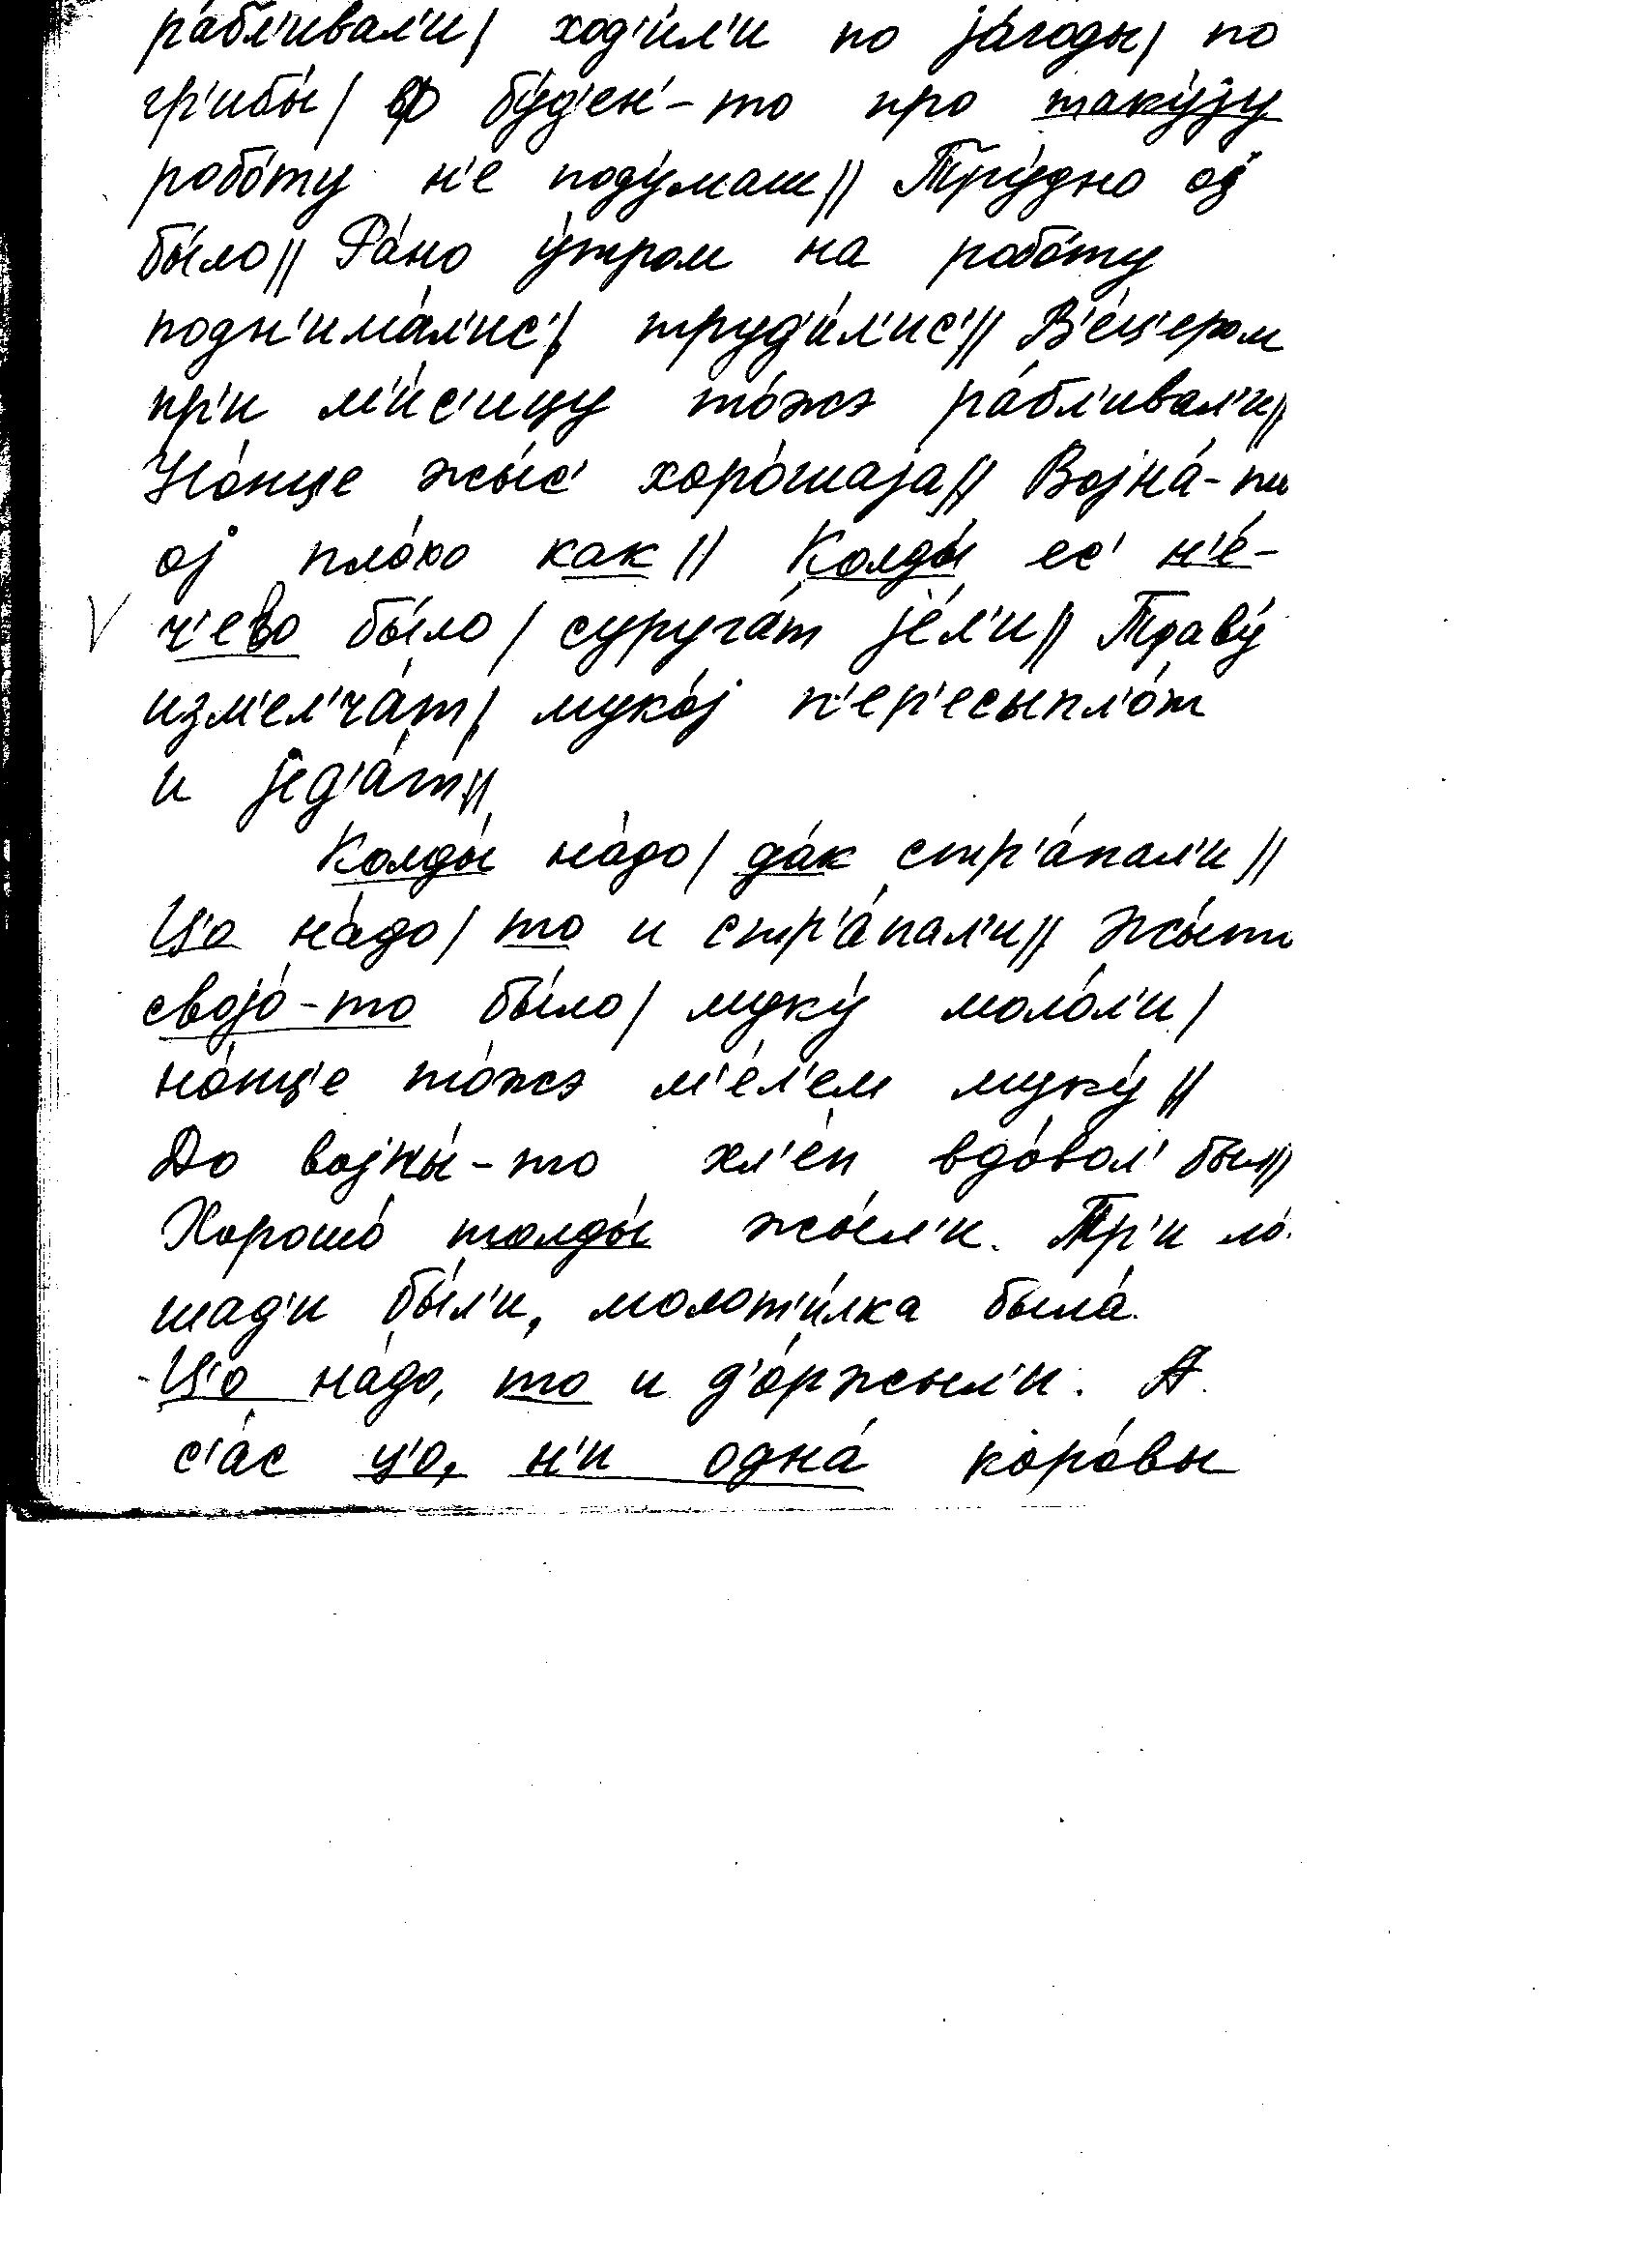 ра́бл'ивал'и/ ход'и́л'и по ја́годы/ по
гр'ибы́/ в бу́д'ен'-то про таку́јy
робо́ту н'е поду́маш// Тру́дно ој
бы́ло// Ра́но у́тром на робо́ту
подн'има́л'ис'/ труд'и́л'ис'// В'е́ц'ером
пр'и м'и́с'ицу то́жэ ра́бл'ивал'и//
Но́нц'е жы́с' хоро́шаја// Војна́-то
ој пло́хо как// Колды́ ес' н'е́-
ч'ево бы́ло/ суруга́т је́л'и// Траву́
изм'ел'ча́т/ муко́ј п'ер'есыпл'о́т
и јед'а́т//
Колды́ на́до/ да́к стр'а́пал'и//
Ц'о на́до/ то и стр'а́пал'и// Жы́то
својо́-то бы́ло/ муку́ моло́л'и/
но́нц'е то́жэ м'е́л'ем муку́//
До војны́-то хл'е́п вдо́вол' был//
Хорошо́ толды́ жы́л'и. Тр'и ло́-
шад'и бы́л'и, молот'и́лка была́.
Ц'о на́до, то и д'о́ржыл'и. А
с'а́с ц'о, н'и одна́ коро́вы